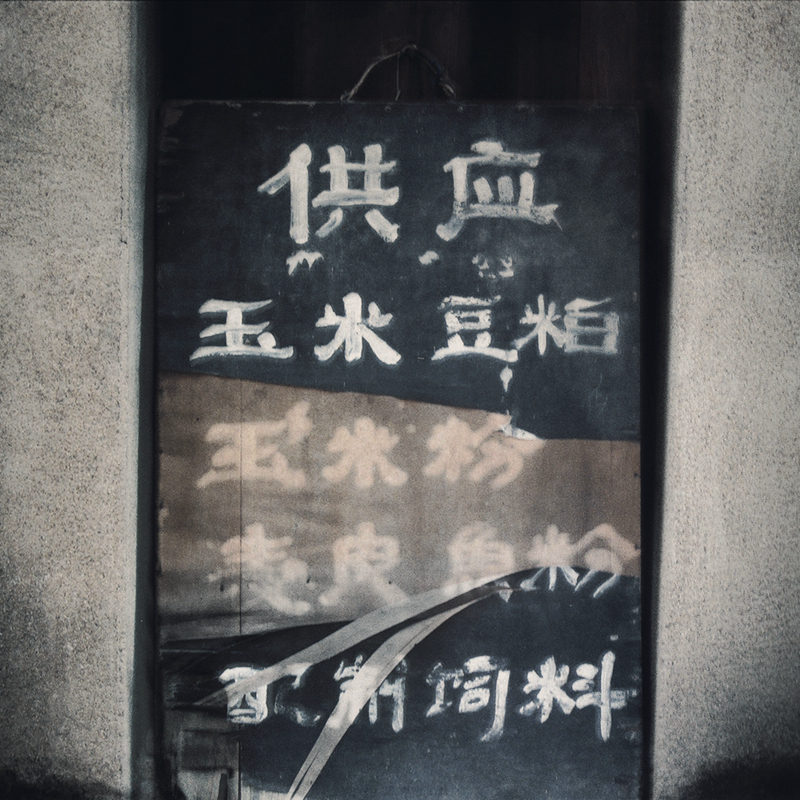 供应
玉米豆粕
玉米粉
麦皮鱼粉
配制饲料